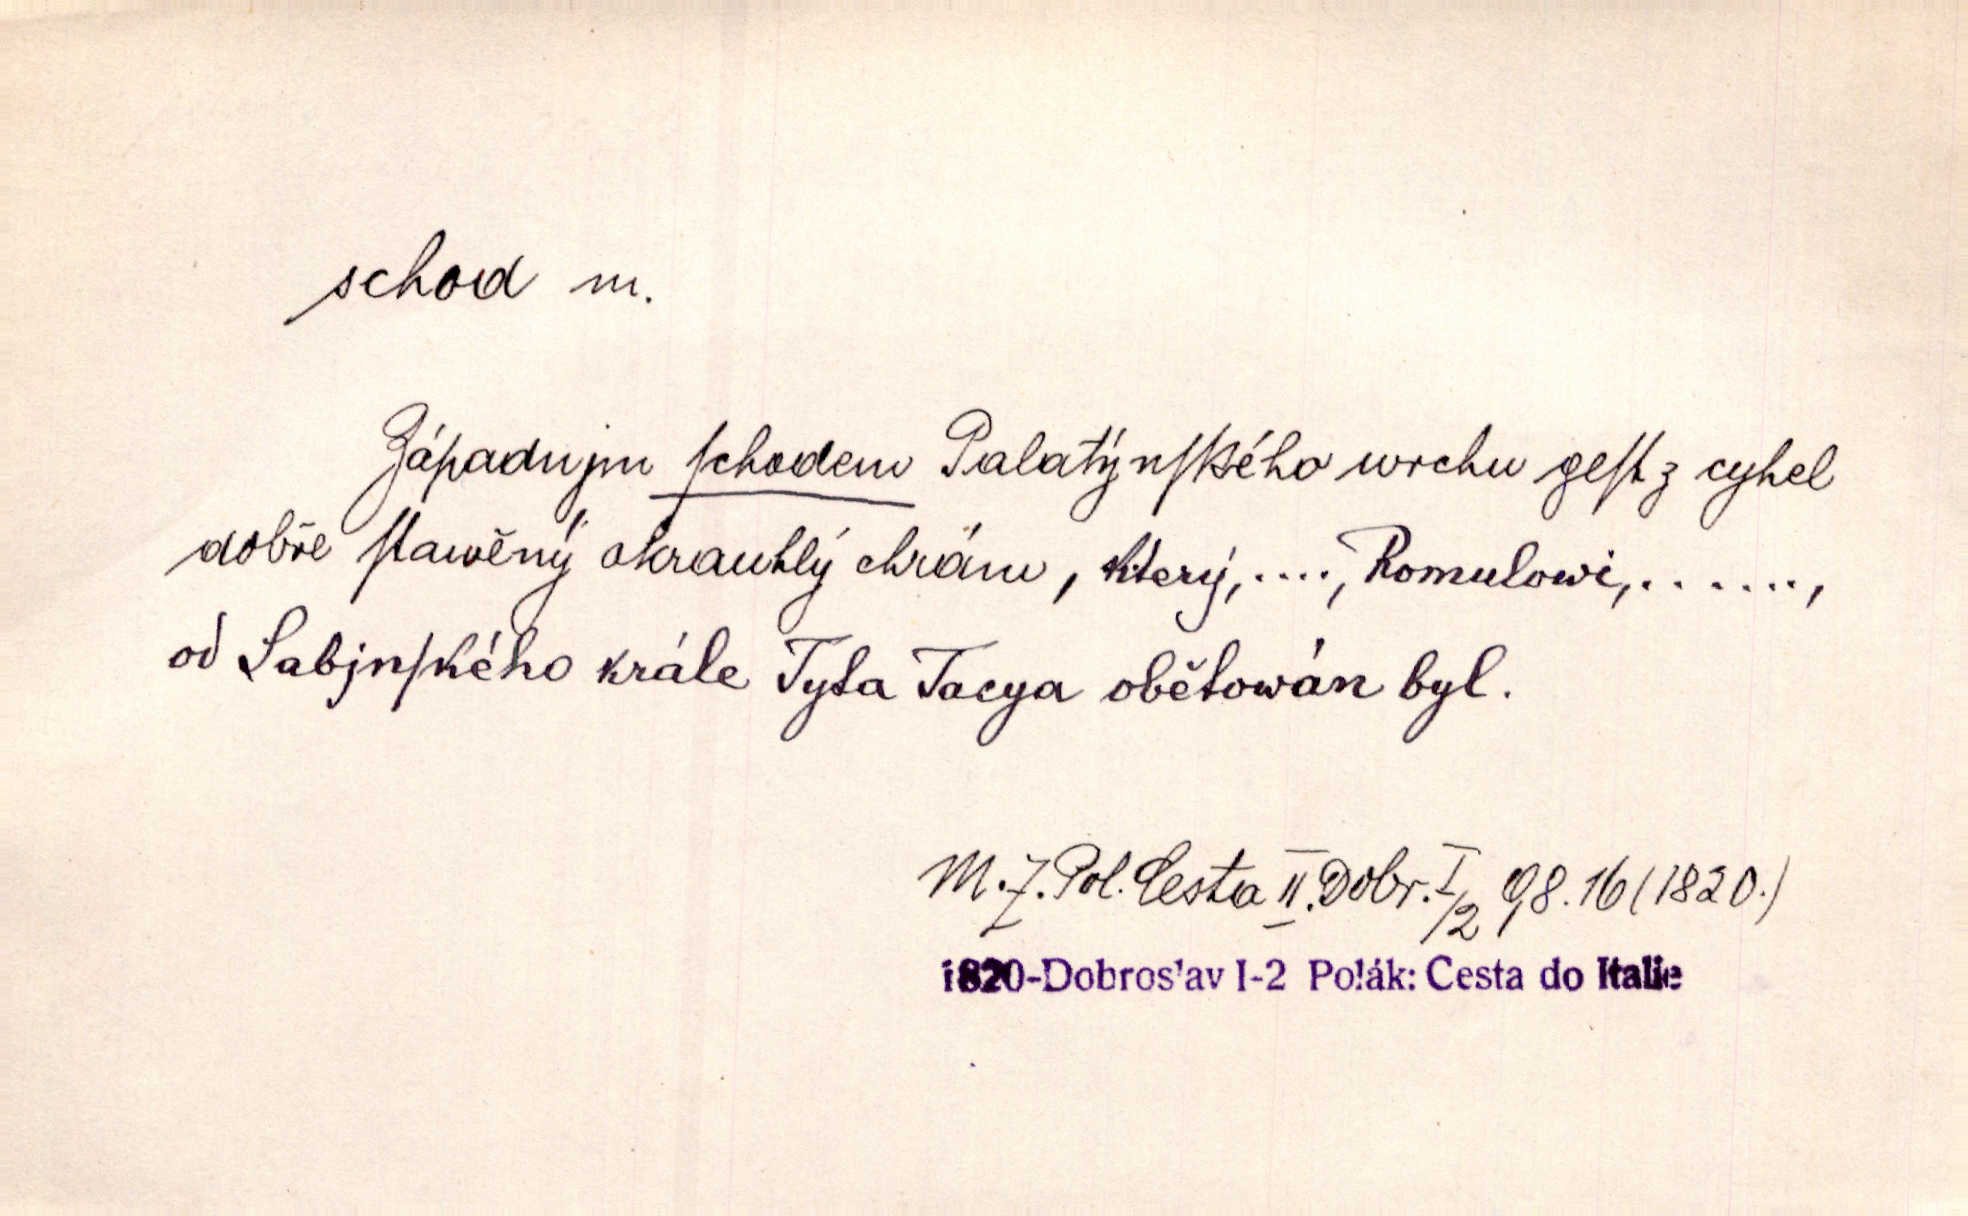 schod m.
Západnjm ſchodem Palatýnſkého wrchu geſt z cyhel
dobře ſtawěný okrauhlý chrám, který,...., Romulowi,.......,
od Sabjnſkého krále Tyta Tacya obětowán byl.
M.Z. Pol. Cesta II. Dobr. I/2 98.16 (1820.)
1820-Dobroslav I-2 Polák: Cesta do Italie